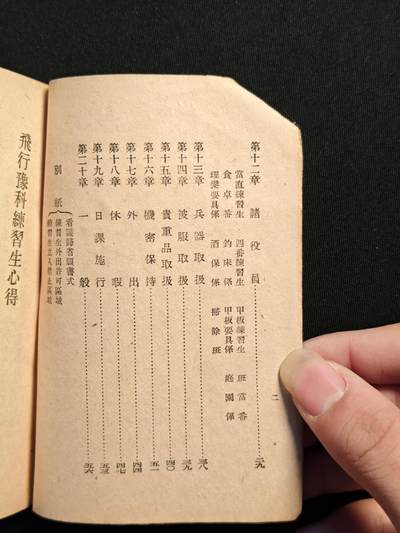 二
第十二章 諸役員 二九
當直練習生 四番練習生 甲板練習生 班當番
食卓番 釣床係 甲板要具係 庭園係
理髮要具係 酒保係 掃除班
第十三章 兵器取扱 三八
第十四章 被服取扱 三九
第十五章 貴重品取扱 四〇
第十六章 機密保持 五一
第十七章 外出 四四
第十八章 休暇 四七
第十九章 日課施行 五三
第二十章 一般 五六
別紙
看護歸省願書式
練習生外出許可區域
練習生立入禁止區域
飛行豫科練習生心得